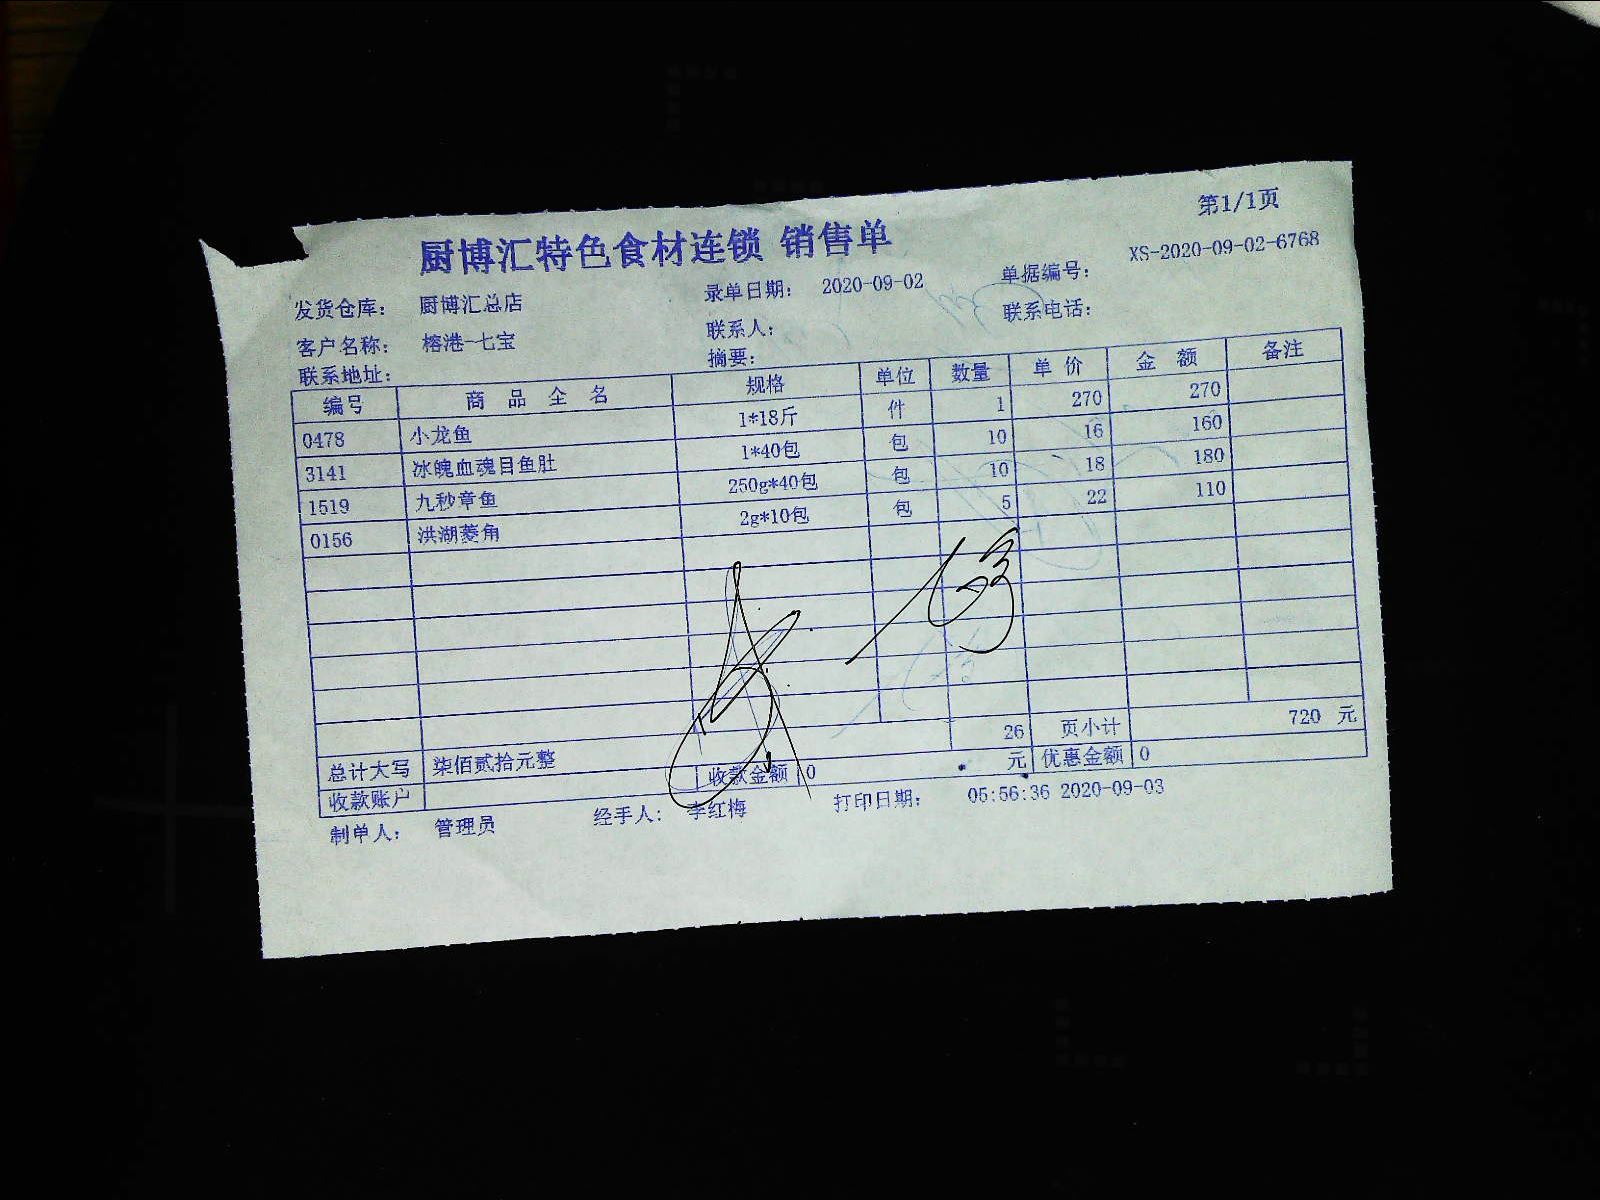 第1/1页
厨博汇特色食材连锁 销售单
发货仓库： 厨博汇总店 录单日期： 2020-09-02 单据编号： XS-2020-09-02-6768
客户名称： 榕港-七宝 联系人： 联系电话：
联系地址： 摘要：
编号 商品全名 规格 单位 数量 单价 金额 备注
0478 小龙鱼 1*18斤 件 1 270 270
3141 冰魄血魂目鱼肚 1*40包 包 10 16 160
1519 九秒章鱼 250g*40包 包 10 18 180
0156 洪湖菱角 2g*10包 包 5 22 110
26 页小计 720 元
总计大写 柒佰贰拾元整 收款金额 0 元 优惠金额 0
收款账户
制单人： 管理员 经手人： 李红梅 打印日期： 05:56:36 2020-09-03